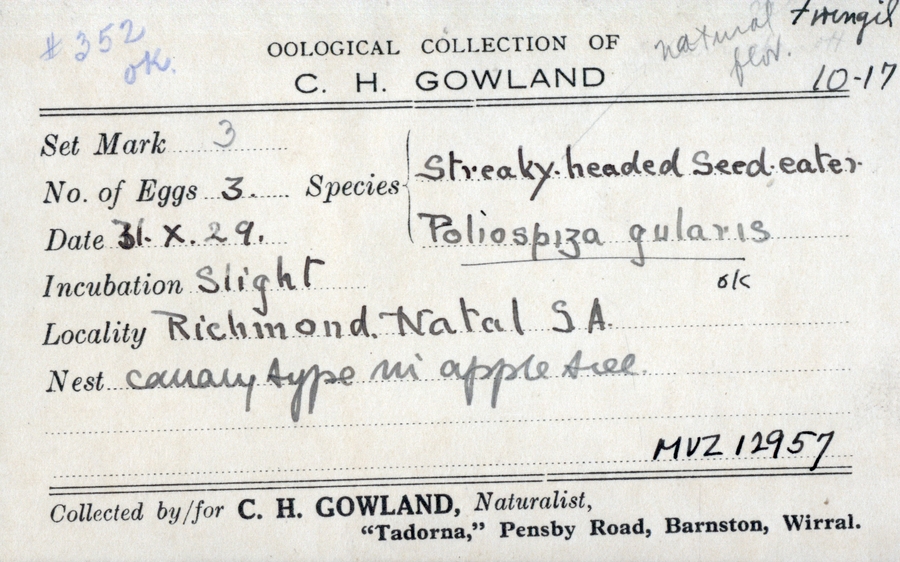 # 352
ok.
natural
Fringil
10-17
OOLOGICAL COLLECTION OF
C. H. GOWLAND
Set Mark 3
No. of Eggs 3. Species Streaky-headed Seed-eater
Date 31. X. 29. Poliospiza gularis
ok
Incubation Slight
Locality Richmond. Natal S A.
Nest canary type in apple tree.
MVZ 12957
Collected by/for C. H. GOWLAND, Naturalist,
"Tadorna," Pensby Road, Barnston, Wirral.